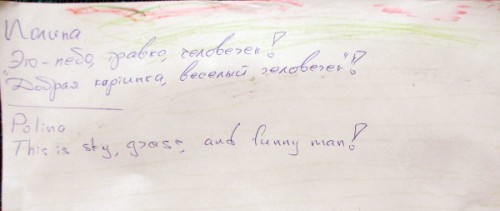 Полина
Это - небо, травка, человечек!
"Добрая картинка, веселый человечек"!
Polina
This is sky, grass, and funny man!